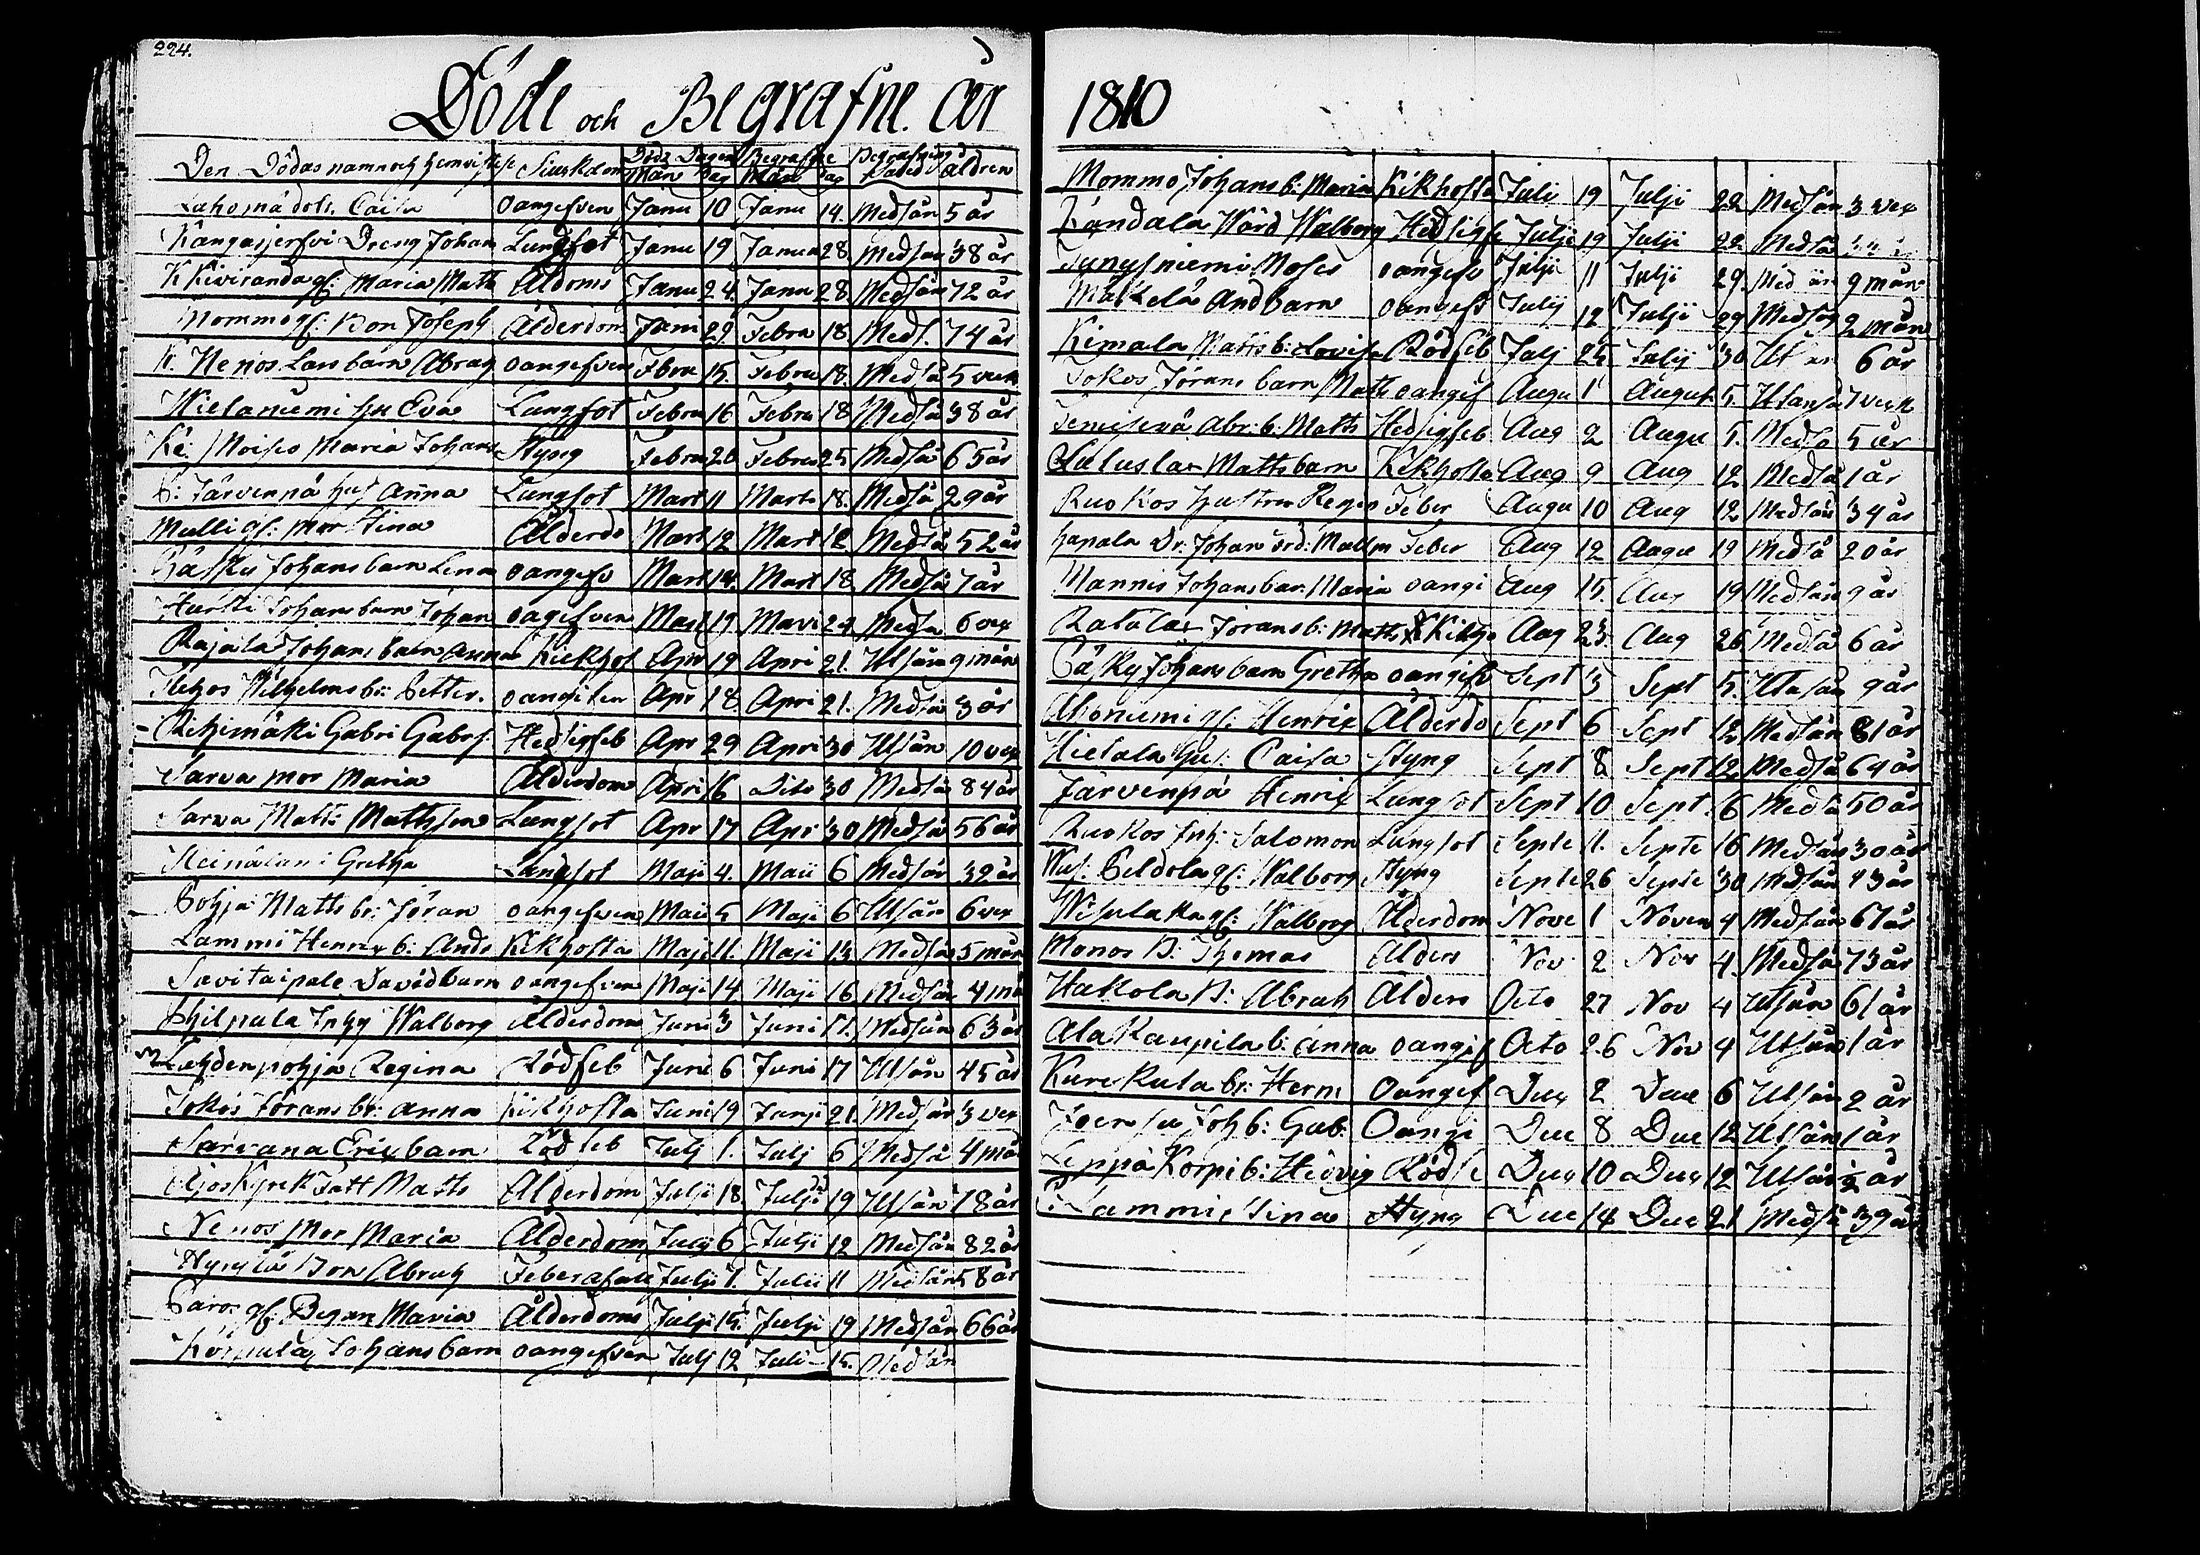 224.
Döde och Begrafne. år 1810
Den Dödas namn och hemvist Siuckdom Döds Dagen Mån Dag Begrafne Mån Dag Begrafnings Åldren
Lahomä dott. Caisa oangefven Janu 10 Janu 14. Medsån 5 år
Kangasjerfvi Dreng Johan Lungsot Janu 19 Janua 28 Medsån 38 år
K Kiviranda gf: Maria Matts Åldoms Janu 24. Janu 28 Medsån 72 år
Mommo gf: Bon Joseph Ålderdoms Janu 29. Febru 18. Meds. 74 år
N. Nenos Lars barn Abrag oangefven Febru 15. Febru 18. Medså 5 veck
Wielaniemi hu Eva Lungsot Febru 16 Febru 18 Medså 38 år
Ke: Moisio Maria Johans Styng Febru 20 Febru 25 Medså 65 år
P: Järvenpä hus Anna Lungsot Mart 11 Marts 18. Medså 29 år
Mulli gf: mor Stina Ålderdo Mart 12 Mart 18 Medså 52 år
Pasku Johans barn Lena oangefv Mart 14. Mart 18 Medså 7 år
Hurtti Johans barn Johan oagefven Mart 19. Marti 24 Medså 6 vex
Rajala Johans barn Anna Kickhof Apr 19 Apri 21. Utsån 9 mån
Wilhelms br: Petter. oangifen Apr 18 Apri 21. Medså 3 år
Rihimäki Gabri Gabrs. Hedsigfeb Apr 29 Apri 30 Utsån 10 vex
Sarva mor Maria Ålderdom Apri 16 Dito 30 Medså 84 år
Sarva Matts Mattsson Lungsot Apr 17 Apr 30 Medså 56 år
Heinälani Gretha Lungsot Maji 4. Maii 6 Medsån 32 år
Pohja Matts br: Jöran oangefven Maii 5 Maji 6 Utsån 6 vex
Lammi Henrix b: Ands Kikhosta Maji 11. Maji 13 Medså 5 mån
Savitaipale David barn oangefven Maji 14 Maji 16 Medså 4 må
Philpula Inhy Walborg Ålderdom Juni 3 Juni 17. Medsån 63 år
Lehdenpohja Regina Rödfeb Juni 6 Juni 17 Utsån 45 år
Jokos Jörans br: Anna Kikhosta Juni 19 Junji 21. Medsån 3 vex
Sarvana Eric barn Rödfeb Julj 1. Julj 6 Medså 4 må
Matts Ålderdom Julji 18. Julji 19 Utsån 78 år
Nenos Mor Maria Ålderdom Julji 6 Julji 12 Medsån 82 år
Bon Abrah Feber Julji 7. Julii 11 Medsån 58 år
Paros gf: Maria Ålderdoms Julji 15. Julji 19 Medsån 66 år
Johans barn oangefven Julj 12 Juli 15. Medsån
Mommo Johans b: Maria Kikhosta Juli 19 Julji 22 Medsån 3 vex
Kandala Wärd Walborg Hedsigfe Julji 19 Julji 22 Medså
Junesniemi Moses oangefv Julji 11 Julji 29. Medsån 9 mån
Mäckelä And barn oangefv Julij 12 Julji 29 Medsån 2 mån
Kimala Matts b: Lovisa Rödfeb Julj 25. Julij 30 Utsån 6 år
Jokos Jörans barn Matts oangef Augu 1 August 5. Utanså 7 veck
Abr: b: Matts Hedsigfeb Aug 2 Augu 5. Medså 5 år
Saluslax Matts barn Kikhosta Aug 9 Aug 12 Medså 1 år
Ruokos Hustru Regin Feber Augu 10 Aug 12 Medsån 34 år
hapala Dr: Johan Feber Aug 12 Augu 19 Medså 20 år
Mannis Johans bar: Maria oangi Aug 15. Aug 19 Medsån 9 år
Ratulax Jörans b: Matts Kikho Aug 23. Aug 26 Medså 6 år
Päsky Johans barn Gretha oangifv Sept 3 Sept 5. Utasån 9 år
Ahoniemi gf: Henrix Ålderdo Sept 6 Sept 12 Medsån 81 år
Hietala hu: Caisa Styng Sept 8 Sept 12 Medså 64 år
Järvenpä Henrix Lungsot Sept 10 Sept. 16 Medså 50 år
Ruokos Inh: Salomon Lungsot Septe 11. Septe 16 Medsån 30 år
Hus: Peldola gf: Walborg Styng Septe 26 Septe 30 Medsån 43 år
Wisula gf: Walborg Ålderdom Nove 1 Noven 4 Medsån 67 år
Monos B: Thomas Ålders Nov 2 Nov 4. Medså 73 år
Hakola B: Abrah Ålders Octo 27 Nov 4 Utsån 61 år
Ala Kaupila b: Anna oangif Octo 26 Nov 4 Utsån 1 år
Kurckula br: Herm Oangef Dux 2 Due 6 Utsån 2 år
Joensu Joh b: Gab Oangi Due 8 Due 12 Utsån 1 år
Leppä Korpi b: Hedvig Rödfe Dux 10 Dux 12 Utsån 2 år
Lammi Stina Styng Due 14 Due 21 Medså 39 år